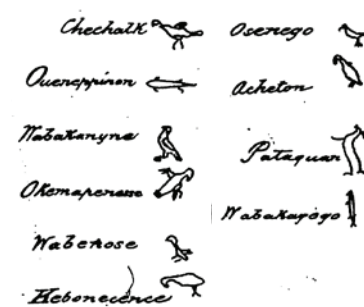 Chechalk
Queneppenon
Wabakanyne
Okemapenesse
Wabenose
Kebonecence
Osenego
Acheton
Pataquan
Wabakagogo